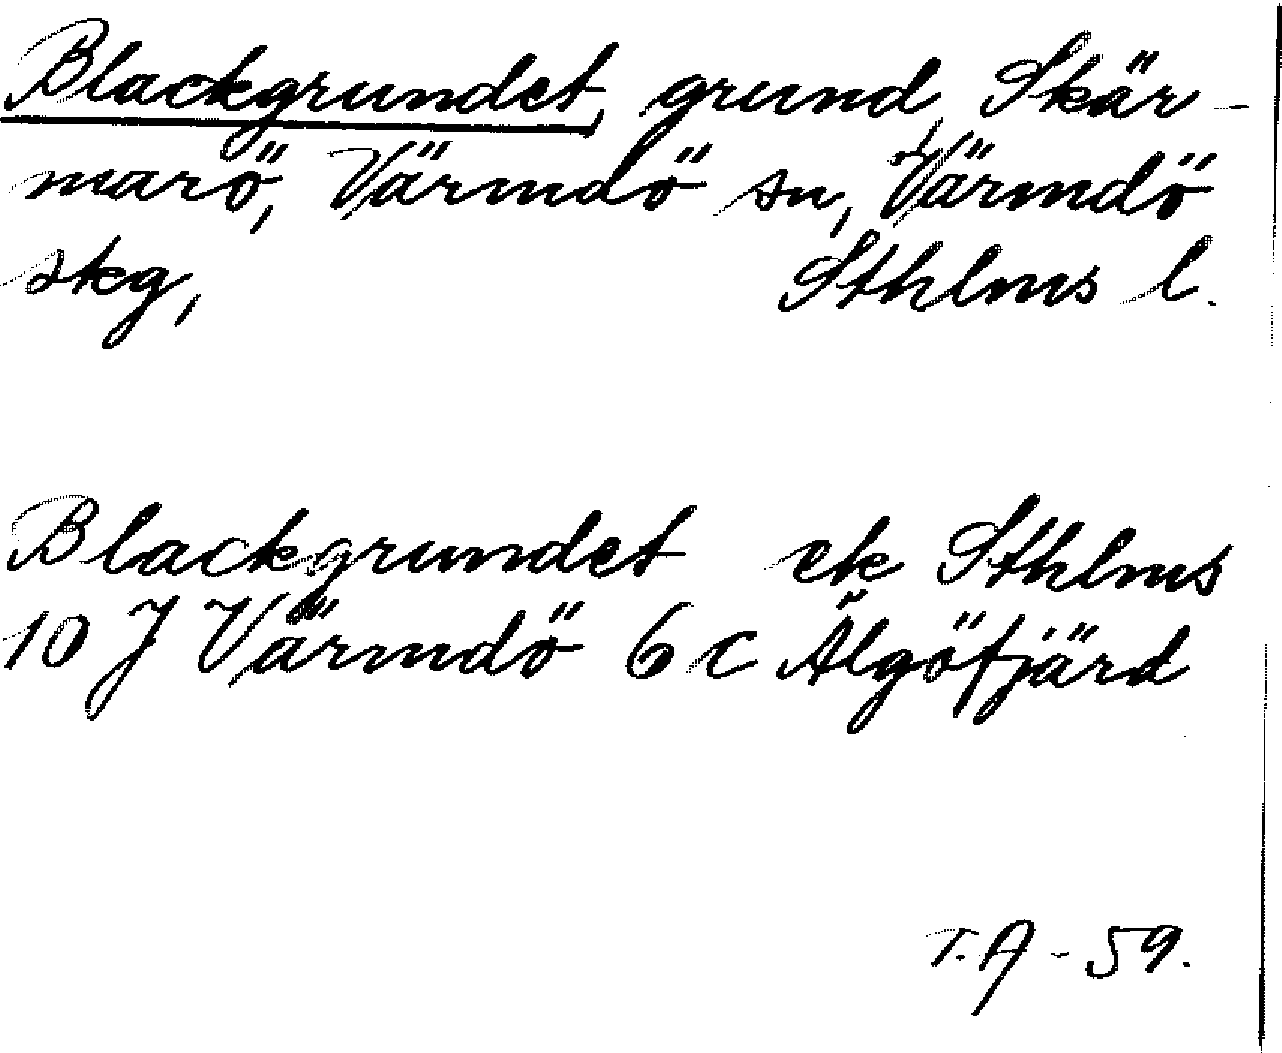 Blackgrundet, grund, Skär-
marö, Värmdö sn, Värmdö
skg, Sthlms l.
Blackgrundet ek Sthlms
10 J Värmdö 6 c Älgöfjärd
T.A - 59.